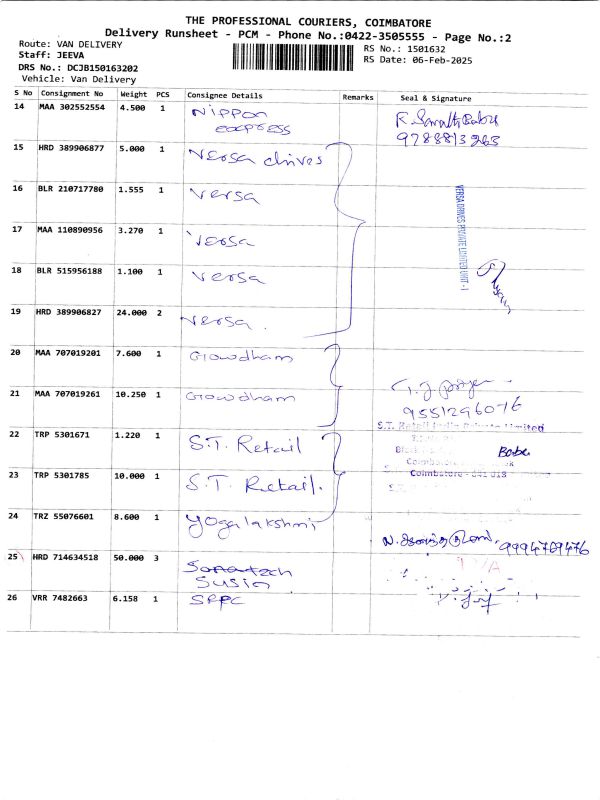 THE PROFESSIONAL COURIERS, COIMBATORE
Delivery Runsheet - PCM - Phone No.:0422-3505555 - Page No.:2
Route: VAN DELIVERY
RS No.: 1501632
Staff: JEEVA
RS Date: 06-Feb-2025
DRS No.: DCJB150163202
Vehicle: Van Delivery
S No Consignment No Weight PCS Consignee Details Remarks Seal & Signature
14 MAA 302552554 4.500 1 Nippon express
9788813263
15 HRD 389906877 5.000 1 Versa drives
16 BLR 210717780 1.555 1 Versa
VERSA DRIVES PRIVATE LIMITED UNIT - 1
17 MAA 110890956 3.270 1 Versa
18 BLR 515956188 1.100 1 Versa
19 HRD 389906827 24.000 2 Versa.
20 MAA 707019201 7.600 1 Gowdham
21 MAA 707019261 10.250 1 Gowdham
9551296076
S.T. Retail India Private Limited
22 TRP 5301671 1.220 1 S.T. Retail
Babu
23 TRP 5301785 10.000 1 S.T. Retail.
Coimbatore
24 TRZ 55076601 8.600 1 Yogalakshmi
9994769476
25 HRD 714634518 50.000 3 Sonatech
Susin
N/A
26 VRR 7482663 6.158 1 SRPC